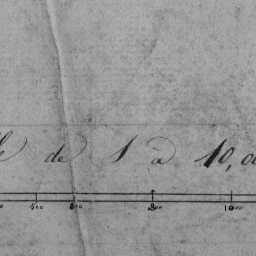 de 1 à 10,00
400 500 800 1000